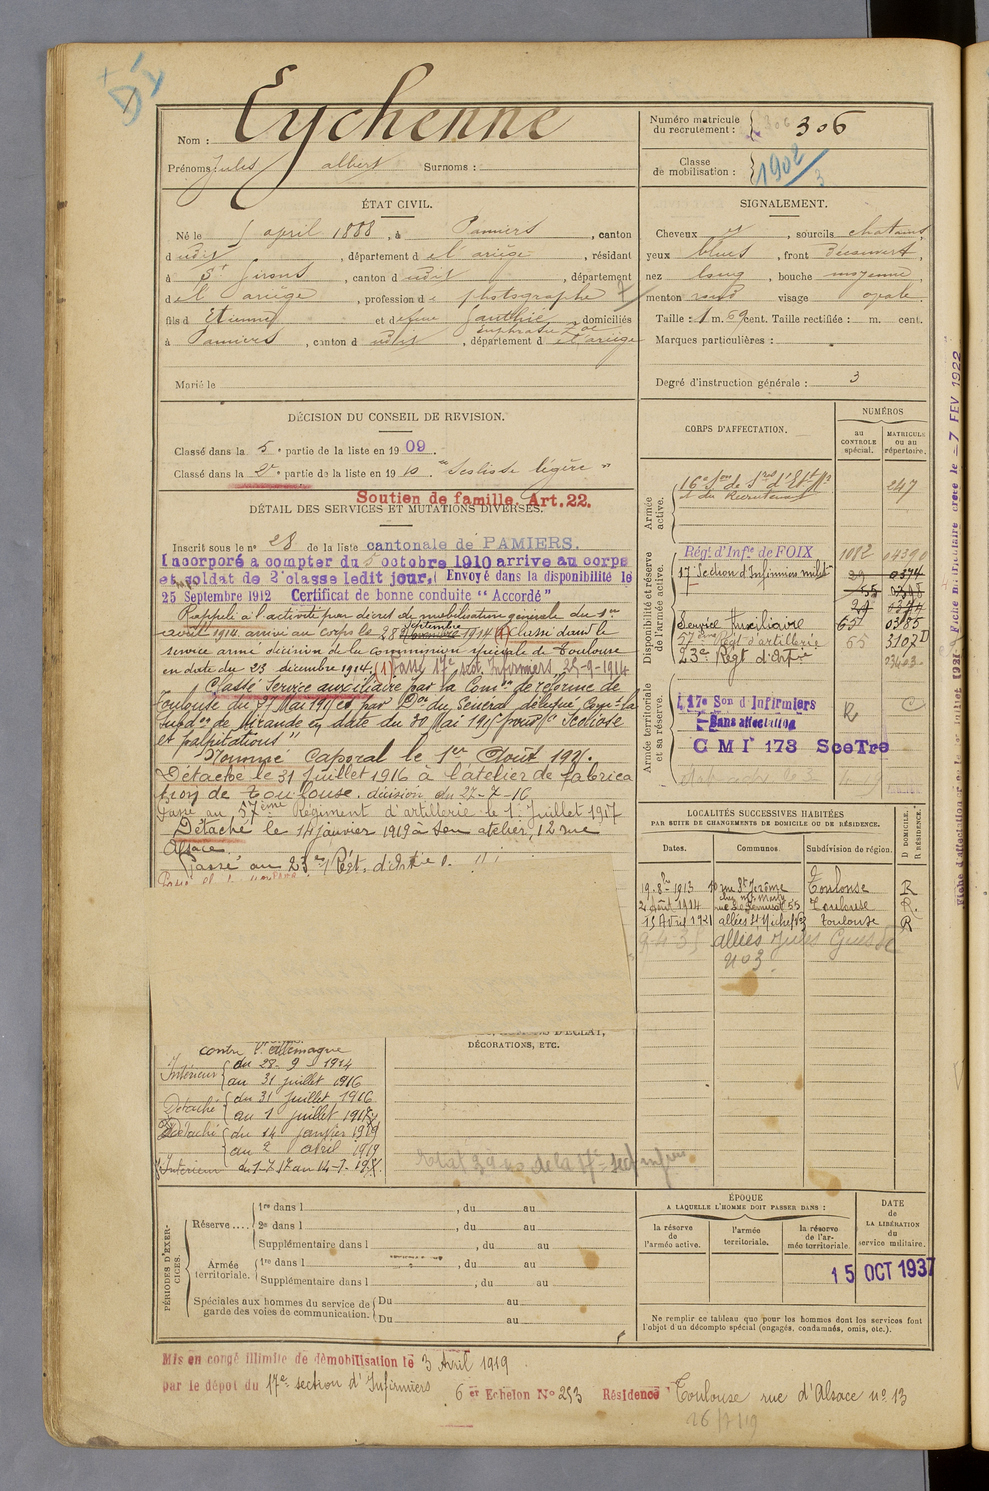 Nom : Eychenne
Prénoms Jules albert Surnoms :
Numéro matricule du recrutement : 306
Classe de mobilisation : 1902/3
ÉTAT CIVIL.
Né le 5 april 1888, à Pamiers, canton
d udit, département de l'ariège, résidant
à St Girons, canton d udit, département
de l'ariège, profession de photographe 7
fils d'Etienne et de feue Gauthié Euphrasie Zoé domiciliés
à Pamiers, canton d udit, département de l'ariège
Marié le
SIGNALEMENT.
Cheveux et, sourcils chatains,
yeux bleus, front découvert,
nez long, bouche moyenne
menton rond visage ovale.
Taille : 1 m. 69 cent. Taille rectifiée : m. cent.
Marques particulières :
Degré d'instruction générale : 3
DÉCISION DU CONSEIL DE REVISION.
Classé dans la 5e partie de la liste en 1909.
Classé dans la 2e partie de la liste en 1910 "Scoliose légère"
Soutien de famille. Art. 22.
DÉTAIL DES SERVICES ET MUTATIONS DIVERSES.
Inscrit sous le n° 28 de la liste cantonale de PAMIERS.
Incorporé a compter du 5 octobre 1910 arrive au corps
et soldat de 2e classe ledit jour. Envoyé dans la disponibilité le
25 Septembre 1912 Certificat de bonne conduite "Accordé"
Rappelé à l'activité par décret de mobilisation générale du 1er
août 1914. arrivé au corps le 28 septembre 1914 (1) Classé dans le
service armé décision de la commission spéciale de Toulouse
en date du 23 décembre 1914. (1) Passé 17e sect. Infirmiers, 25-9-1914
Classé Service auxiliaire par la Comon de réforme de
Toulouse du 27 Mai 1915
Subdon de Mirande en date du 30 Mai 1915 pour "Scoliose
et palpitations"
Nommé Caporal le 1er Août 1916.
Détaché le 31 Juillet 1916 à l'atelier de fabrica
tion de Toulouse. décision du 27-7-16
Passé au 57ème Régiment d'artillerie le 1er Juillet 1917
Détaché le 14 janvier 1919 à son atelier, 12 rue
Alsace.
Passé au 23e Régt. d'Artie
CORPS D'AFFECTATION.
NUMÉROS
au CONTROLE spécial.
MATRICULE ou au répertoire.
Armée active.
16e Son de Sres d'Et-Mr
et du Recrutement 247
Disponibilité et réserve de l'armée active.
Régt d'Infie de FOIX 1082 04390
17e Section d'Infirmiers milit
Service Auxiliaire 657 0385
57e Régt d'artillerie 65 3107D
23e Régt d'Artie
Armée territoriale et sa réserve.
17e Son d'Infirmiers R C
Sans affectation
C M I 173 SceTre
LOCALITÉS SUCCESSIVES HABITÉES
PAR SUITE DE CHANGEMENTS DE DOMICILE OU DE RÉSIDENCE.
Dates. Communes. Subdivision de région. D DOMICILE. R RÉSIDENCE.
19-8bre 1913 10 rue St Jérôme Toulouse R
2 Août 1914 rue de Rémusat 55 Toulouse R.
15 Avril 1921 allées St Michel n°3 Toulouse R
allées Jules Guesde
n° 3
DÉCORATIONS, ETC.
contre l'Allemagne
Intérieur du 28-9-1914
au 31 juillet 1916
Détaché du 31 Juillet 1916
au 1 juillet 1917
Détaché du 14 janvier 1919
au 2 avril 1919
Intérieur du 1-7-17 au 14-1-19.
PÉRIODES D'EXERCICES.
Réserve....
1re dans l , du au
2e dans l , du au
Supplémentaire dans l , du au
Armée territoriale.
1re dans l , du au
Supplémentaire dans l , du au
Spéciales aux hommes du service de garde des voies de communication.
Du au
Du au
ÉPOQUE
A LAQUELLE L'HOMME DOIT PASSER DANS :
la réserve de l'armée active.
l'armée territoriale.
la réserve de l'armée territoriale.
DATE de LA LIBÉRATION du service militaire.
15 OCT 1937
Ne remplir ce tableau que pour les hommes dont les services font
l'objet d'un décompte spécial (engagés, condamnés, omis, etc.).
Mis en congé illimité de démobilisation le 3 Avril 1919
par le dépot du 17e section d'Infirmiers 6er Echelon N° 253 Résidence Toulouse rue d'Alsace n° 13